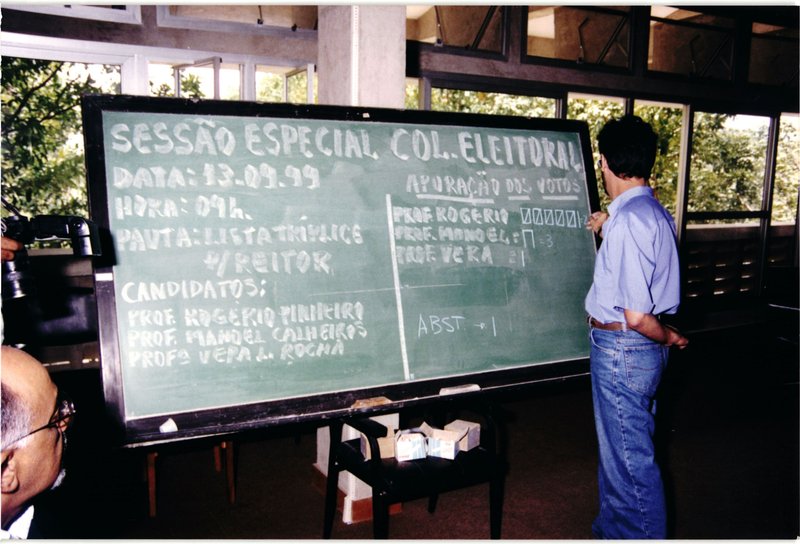 SESSÃO ESPECIAL COL. ELEITORAL
DATA: 13.09.99
HORA: 09h.
PAUTA: LISTA TRÍPLICE
P/ REITOR
CANDIDATOS:
PROF. ROGERIO PINHEIRO
PROF. MANOEL CALHEIROS
PROFª VERA L. ROCHA
APURAÇÃO DOS VOTOS
PROF. ROGERIO
PROF. MANOEL: = 3
PROF. VERA : 1
ABST → 1